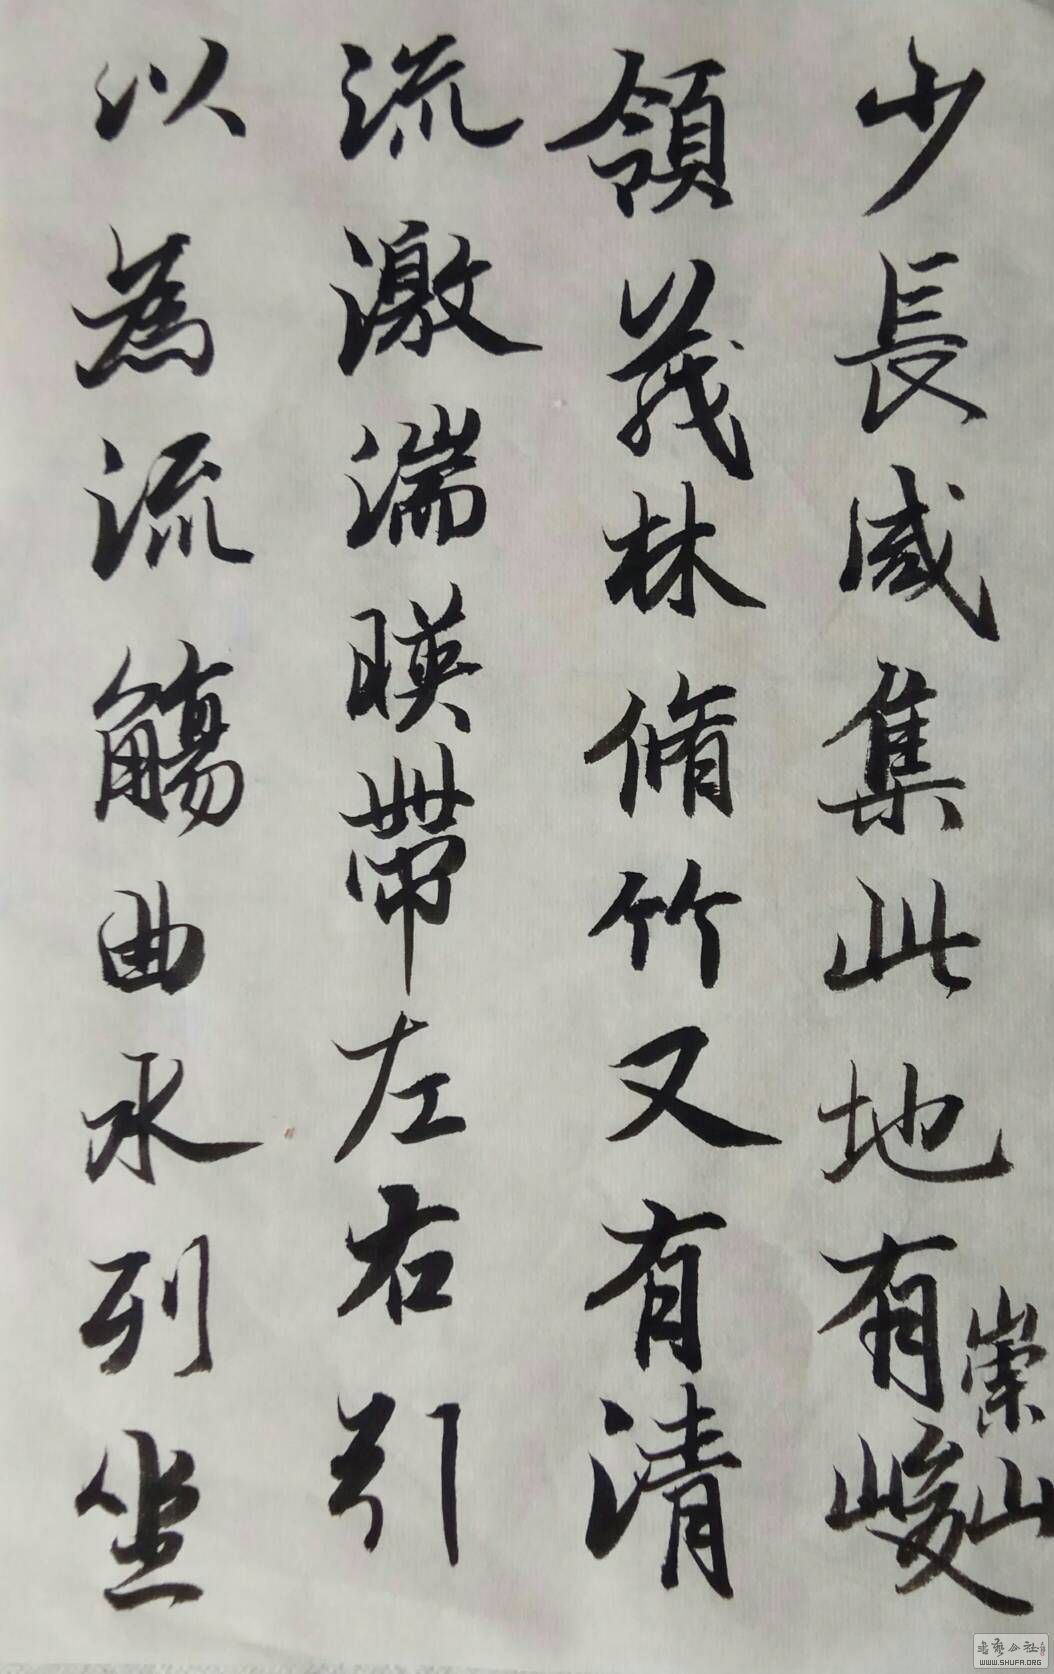 少長咸集此地有崇山峻
領茂林脩竹又有清
流激湍暎帶左右引
以為流觴曲水列坐
书艺公社
WWW.SHUFA.ORG